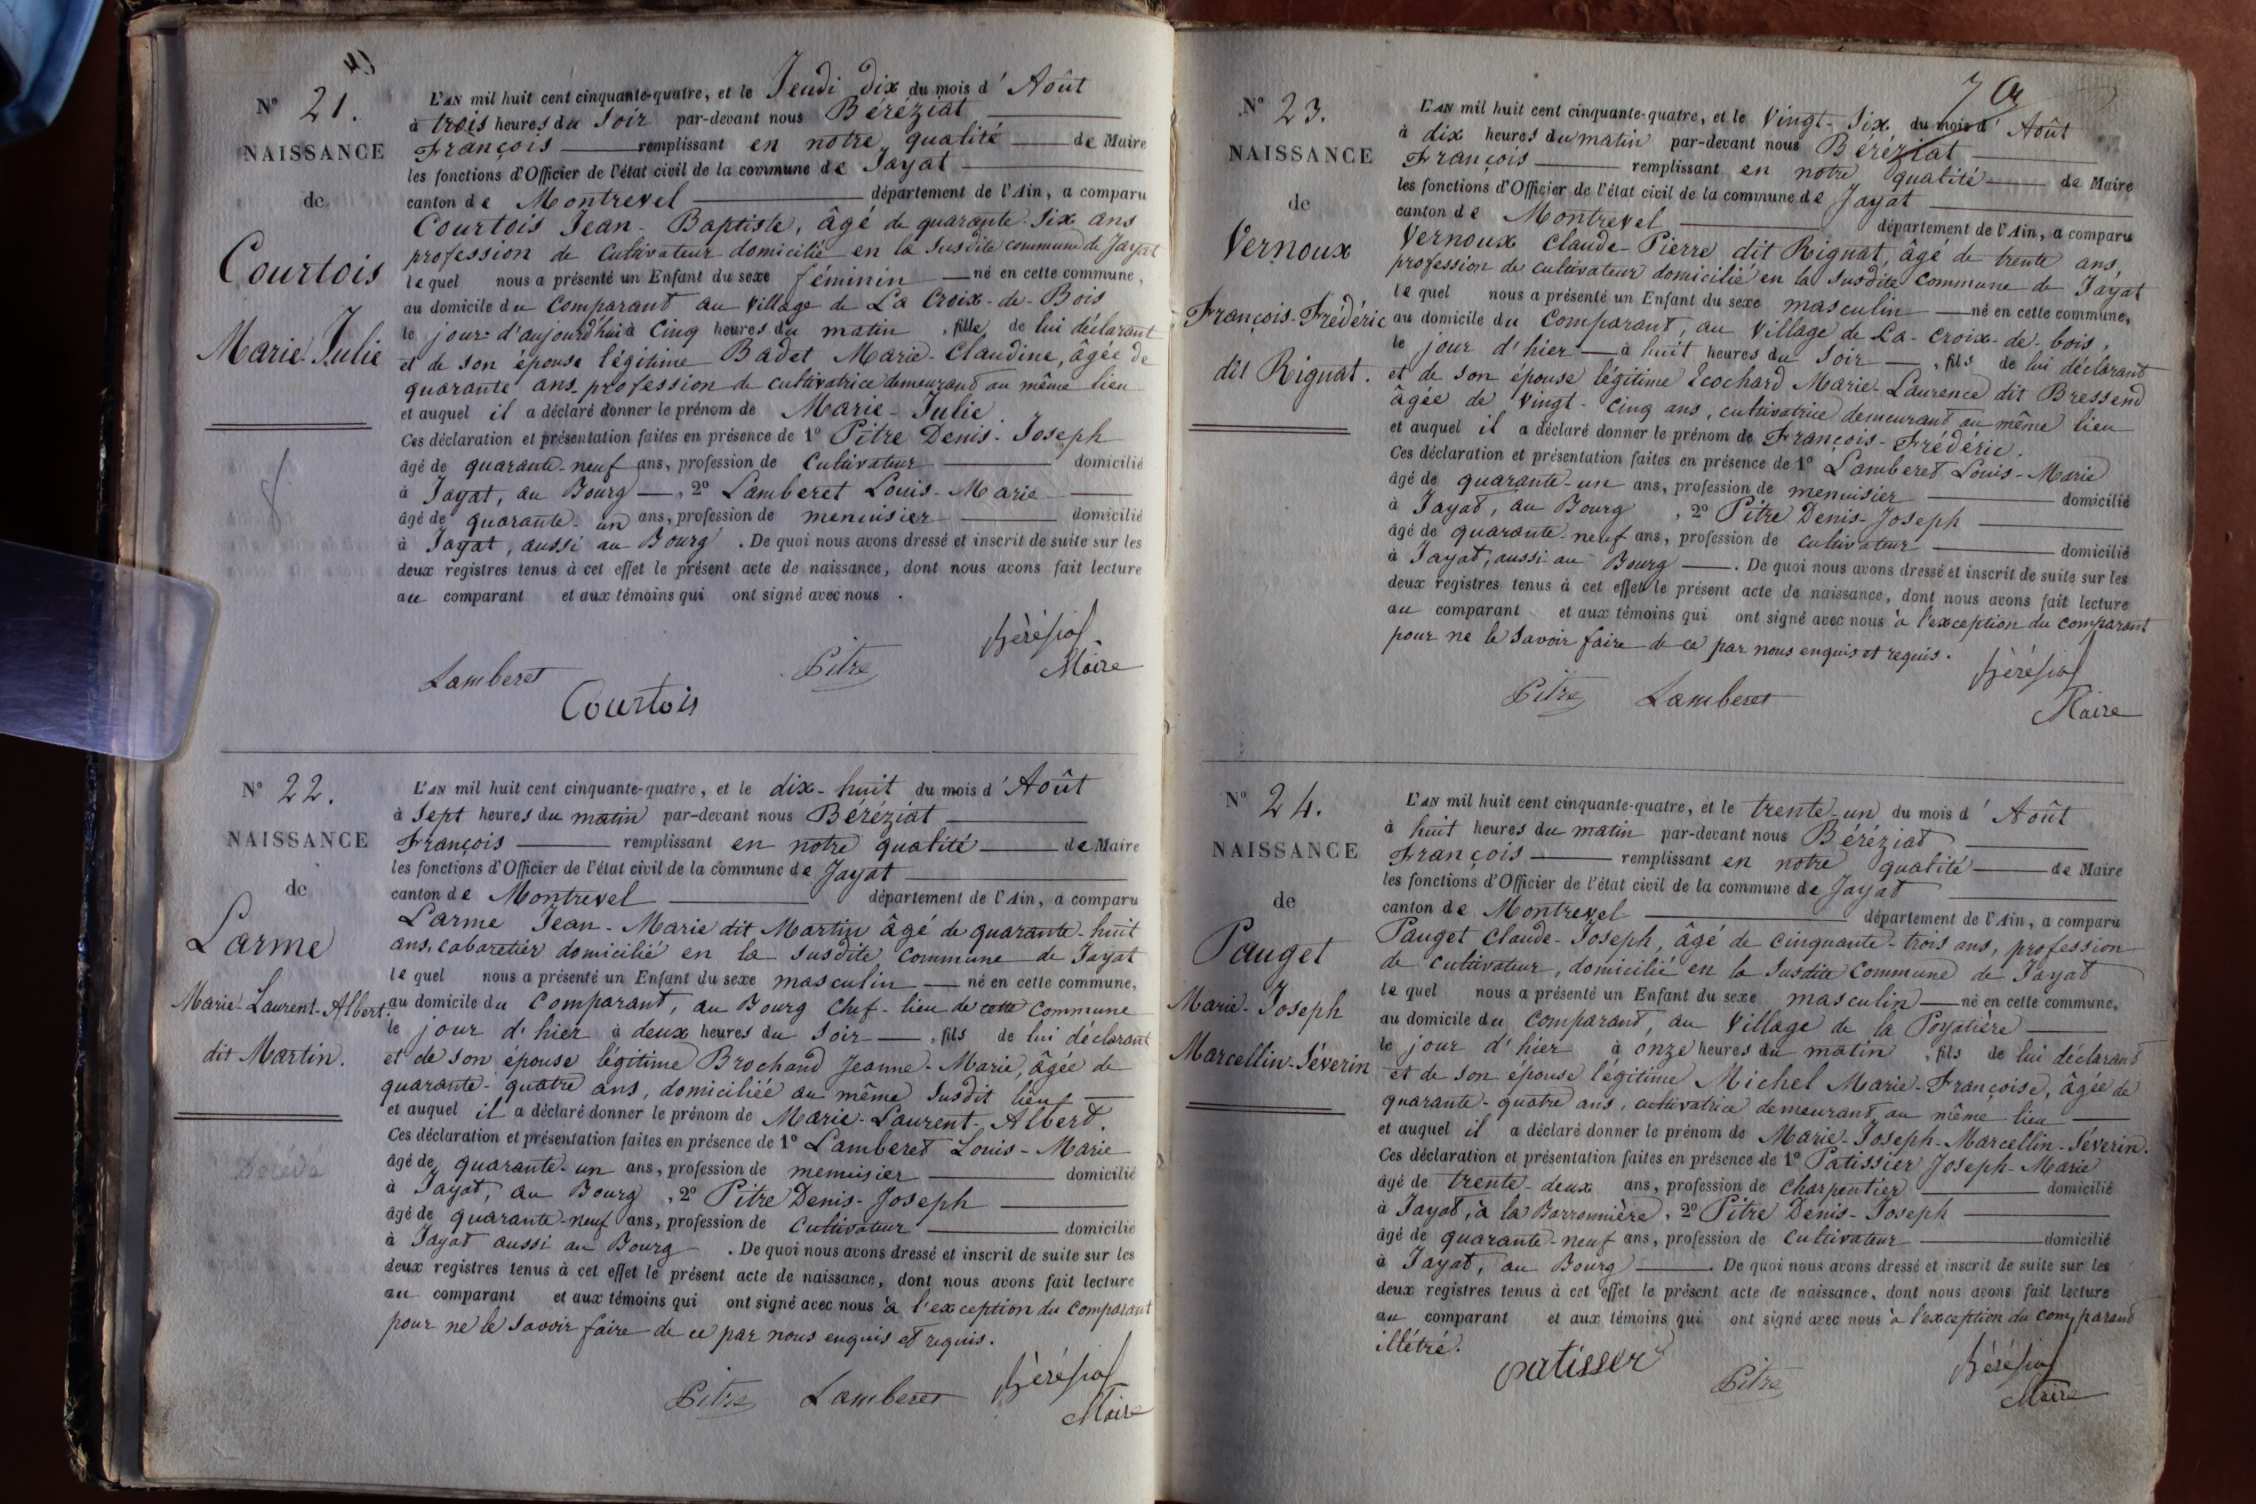 N° 21.
NAISSANCE
de
Courtois
Marie-Julie
L'AN mil huit cent cinquante-quatre, et le Jeudi dix du mois d'Août
à trois heures du Soir par-devant nous Béréziat
François remplissant en notre qualité de Maire
les fonctions d'Officier de l'état civil de la commune de Jayat
canton de Montrevel département de l'Ain, a comparu
Courtois Jean-Baptiste, âgé de quarante-six ans
profession de Cultivateur domicilié en la susdite commune de Jayat
lequel nous a présenté un Enfant du sexe féminin né en cette commune,
au domicile du Comparant au village de La Croix-de-Bois
le jour d'aujourd'hui à Cinq heures du matin, fille de lui déclarant
et de son épouse légitime Badet Marie-Claudine, âgée de
quarante ans profession de cultivatrice demeurant au même lieu
et auquel il a déclaré donner le prénom de Marie-Julie
Ces déclaration et présentation faites en présence de 1° Pitre Denis-Joseph
âgé de quarante-neuf ans, profession de Cultivateur domicilié
à Jayat, au Bourg, 2° Lamberet Louis-Marie
âgé de quarante-un ans, profession de menuisier domicilié
à Jayat, aussi au Bourg. De quoi nous avons dressé et inscrit de suite sur les
deux registres tenus à cet effet le présent acte de naissance, dont nous avons fait lecture
au comparant et aux témoins qui ont signé avec nous.
Béréziat
Lamberet Pitre Maire
Courtois
N° 22.
NAISSANCE
de
Larme
Marie-Laurent-Albert
dit Martin.
L'AN mil huit cent cinquante-quatre, et le dix-huit du mois d'Août
à Sept heures du matin par-devant nous Béréziat
François remplissant en notre qualité de Maire
les fonctions d'Officier de l'état civil de la commune de Jayat
canton de Montrevel département de l'Ain, a comparu
Larme Jean-Marie dit Martin âgé de quarante-huit
ans, cabaretier domicilié en la susdite commune de Jayat
lequel nous a présenté un Enfant du sexe masculin né en cette commune,
au domicile du Comparant, au Bourg Chef-lieu de cette Commune
le jour d'hier à deux heures du Soir, fils de lui déclarant
et de son épouse légitime Brochand Jeanne-Marie, âgée de
quarante-quatre ans, domiciliée au même susdit lieu
et auquel il a déclaré donner le prénom de Marie-Laurent-Albert.
Ces déclaration et présentation faites en présence de 1° Lamberet Louis-Marie
âgé de quarante-un ans, profession de menuisier domicilié
à Jayat, au Bourg, 2° Pitre Denis-Joseph
âgé de quarante-neuf ans, profession de Cultivateur domicilié
à Jayat aussi au Bourg. De quoi nous avons dressé et inscrit de suite sur les
deux registres tenus à cet effet le présent acte de naissance, dont nous avons fait lecture
au comparant et aux témoins qui ont signé avec nous à l'exception du Comparant
pour ne le savoir faire de ce par nous enquis et requis.
Pitre Lamberet Béréziat
Maire
N° 23.
NAISSANCE
de
Vernoux
François-Frédéric
dit Rignat.
L'AN mil huit cent cinquante-quatre, et le Vingt-Six du mois d'Août
à dix heures du matin par-devant nous Béréziat
François remplissant en notre qualité de Maire
les fonctions d'Officier de l'état civil de la commune de Jayat
canton de Montrevel département de l'Ain, a comparu
Vernoux Claude-Pierre dit Rignat, âgé de trente ans,
profession de cultivateur domicilié en la susdite Commune de Jayat
lequel nous a présenté un Enfant du sexe masculin né en cette commune,
au domicile du Comparant, au Village de La-Croix-de-bois,
le jour d'hier à huit heures du Soir, fils de lui déclarant
et de son épouse légitime Ecochard Marie-Laurence dit Bressend
âgée de vingt-cinq ans, cultivatrice demeurant au même lieu
et auquel il a déclaré donner le prénom de François-Frédéric.
Ces déclaration et présentation faites en présence de 1° Lamberet Louis-Marie
âgé de quarante-un ans, profession de menuisier domicilié
à Jayat, au Bourg, 2° Pitre Denis-Joseph
âgé de quarante-neuf ans, profession de cultivateur domicilié
à Jayat, aussi au Bourg. De quoi nous avons dressé et inscrit de suite sur les
deux registres tenus à cet effet le présent acte de naissance, dont nous avons fait lecture
au comparant et aux témoins qui ont signé avec nous à l'exception du comparant
pour ne le savoir faire de ce par nous enquis et requis.
Béréziat
Pitre Lamberet
Maire
N° 24.
NAISSANCE
de
Pauget
Marie-Joseph
Marcellin-Séverin
L'AN mil huit cent cinquante-quatre, et le trente-un du mois d'Août
à huit heures du matin par-devant nous Béréziat
François remplissant en notre qualité de Maire
les fonctions d'Officier de l'état civil de la commune de Jayat
canton de Montrevel département de l'Ain, a comparu
Pauget Claude-Joseph, âgé de cinquante-trois ans, profession
de cultivateur, domicilié en la susdite Commune de Jayat
lequel nous a présenté un Enfant du sexe masculin né en cette commune,
au domicile du Comparant, au Village de la Poyatière
le jour d'hier à onze heures du matin, fils de lui déclarant
et de son épouse légitime Michel Marie-Françoise, âgée de
quarante-quatre ans, cultivatrice demeurant au même lieu
et auquel il a déclaré donner le prénom de Marie-Joseph-Marcellin-Séverin.
Ces déclaration et présentation faites en présence de 1° Patissier Joseph-Marie
âgé de trente-deux ans, profession de Charpentier domicilié
à Jayat, à la Barronnière, 2° Pitre Denis-Joseph
âgé de quarante-neuf ans, profession de Cultivateur domicilié
à Jayat, au Bourg. De quoi nous avons dressé et inscrit de suite sur les
deux registres tenus à cet effet le présent acte de naissance, dont nous avons fait lecture
au comparant et aux témoins qui ont signé avec nous à l'exception du comparant
illétré.
patisser Pitre Béréziat
Maire